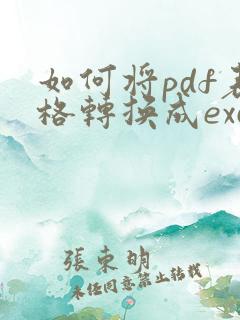 如何將pdf表
格轉換成exc
張東明
未經同意禁止轉載